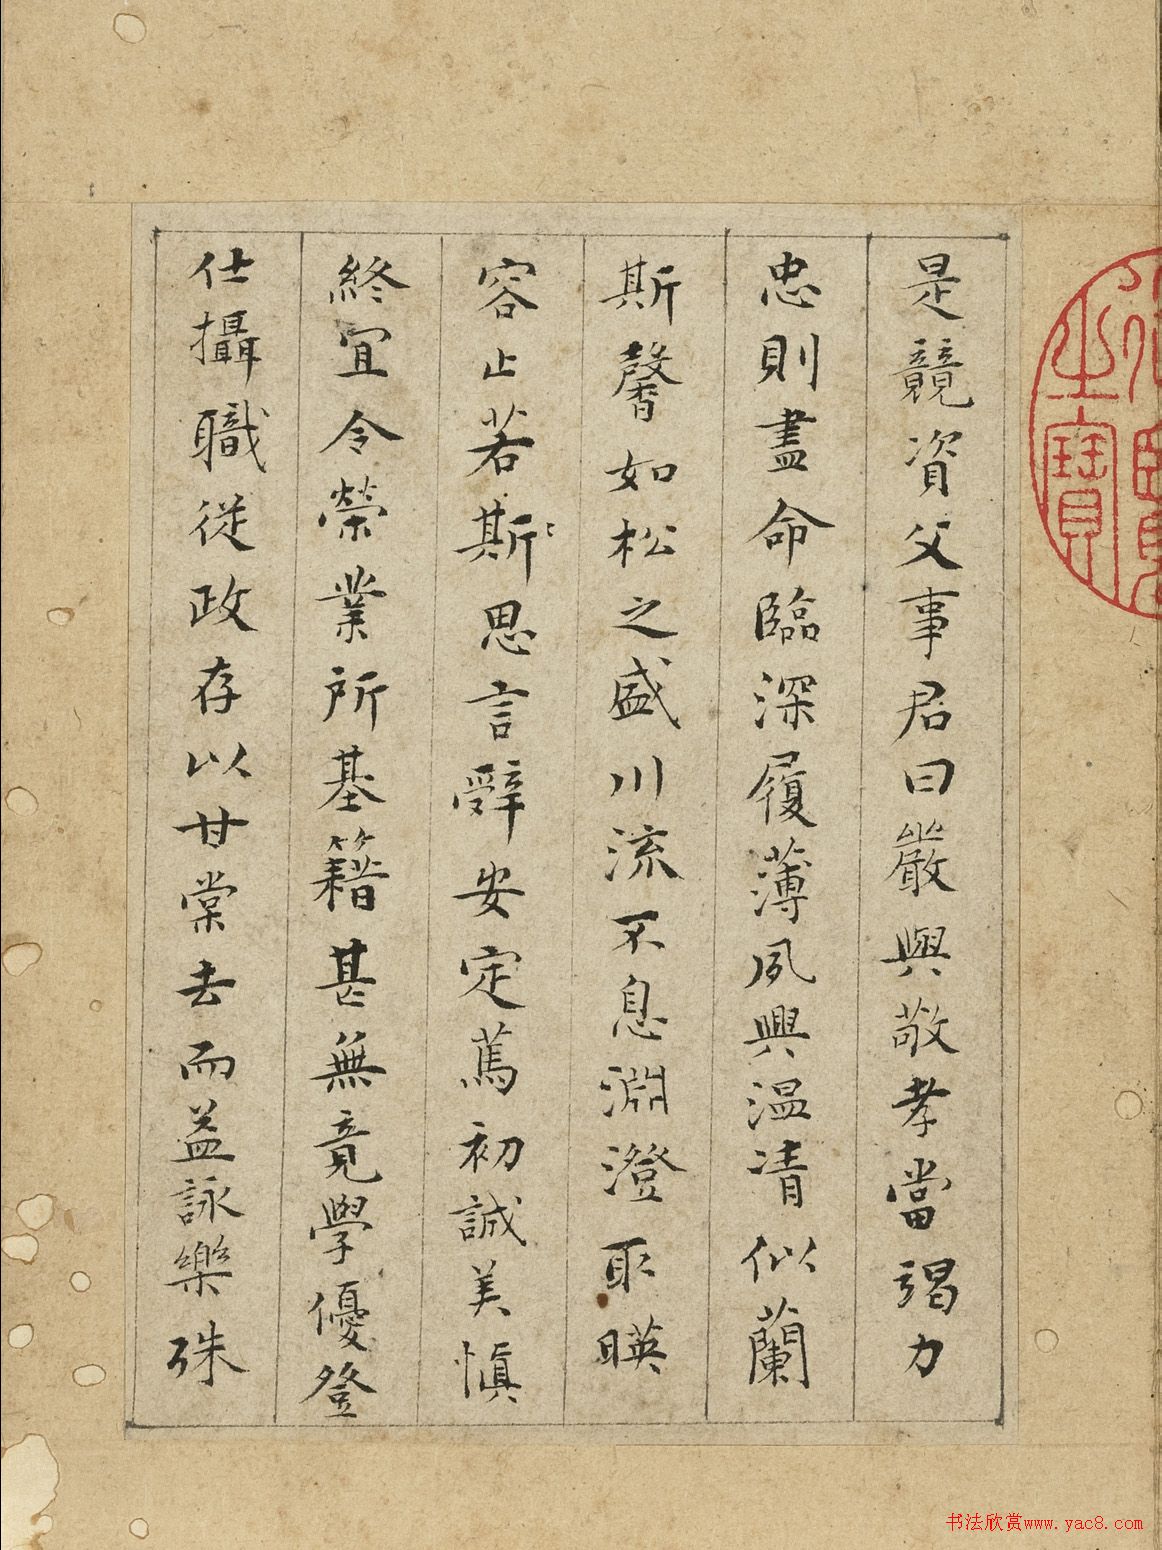 是競資父事君曰嚴與敬孝當竭力
忠則盡命臨深履薄夙興温凊似蘭
斯馨如松之盛川流不息淵澄取暎
容止若斯思言辭安定篤初誠美慎
終宜令榮業所基籍甚無竟學優登
仕攝職從政存以甘棠去而益詠樂殊
之寶
书法欣赏www.yac8.com